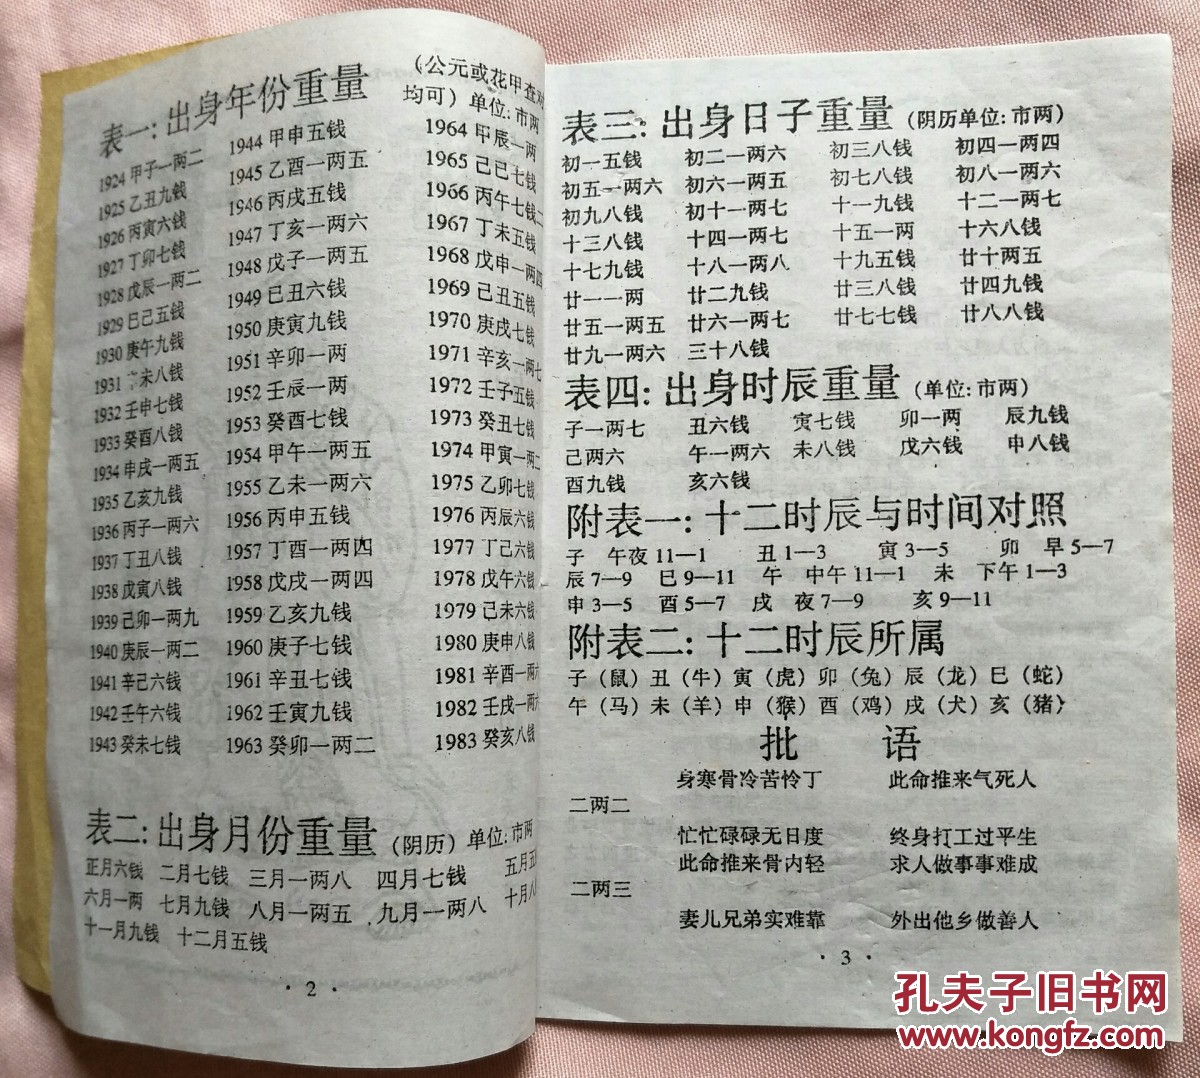 表一:出身年份重量
(公元或花甲查对
均可)单位:市两
1924 甲子一两二
1925 乙丑九钱
1926 丙寅六钱
1927 丁卯七钱
1928 戊辰一两二
1929 巳己五钱
1930 庚午九钱
1931 辛未八钱
1932 壬申七钱
1933 癸酉八钱
1934 申戌一两五
1935 乙亥九钱
1936 丙子一两六
1937 丁丑八钱
1938 戊寅八钱
1939 己卯一两九
1940 庚辰一两二
1941 辛己六钱
1942 壬午六钱
1943 癸未七钱
1944 甲申五钱
1945 乙酉一两五
1946 丙戌五钱
1947 丁亥一两六
1948 戊子一两五
1949 巳丑六钱
1950 庚寅九钱
1951 辛卯一两
1952 壬辰一两
1953 癸酉七钱
1954 甲午一两五
1955 乙未一两六
1956 丙申五钱
1957 丁酉一两四
1958 戊戌一两四
1959 乙亥九钱
1960 庚子七钱
1961 辛丑七钱
1962 壬寅九钱
1963 癸卯一两二
1964 甲辰一两
1965 己巳七钱
1966 丙午七钱二
1967 丁未五钱
1968 戊申一两四
1969 己丑五钱
1970 庚戌七钱
1971 辛亥一两七
1972 壬子五钱
1973 癸丑七钱
1974 甲寅一两二
1975 乙卯七钱
1976 丙辰六钱
1977 丁己六钱
1978 戊午六钱
1979 己未六钱
1980 庚申八钱
1981 辛酉一两六
1982 壬戌一两六
1983 癸亥八钱
表二:出身月份重量(阴历)单位:市两
正月六钱 二月七钱 三月一两八 四月七钱 五月五
六月一两 七月九钱 八月一两五 九月一两八 十月八
十一月九钱 十二月五钱
·2·
表三:出身日子重量(阴历单位:市两)
初一五钱 初二一两六 初三八钱 初四一两四
初五一两六 初六一两五 初七八钱 初八一两六
初九八钱 初十一两七 十一九钱 十二一两七
十三八钱 十四一两七 十五一两 十六八钱
十七九钱 十八一两八 十九五钱 廿十两五
廿一一两 廿二九钱 廿三八钱 廿四九钱
廿五一两五 廿六一两七 廿七七钱 廿八八钱
廿九一两六 三十八钱
表四:出身时辰重量(单位:市两)
子一两七 丑六钱 寅七钱 卯一两 辰九钱
己两六 午一两六 未八钱 戊六钱 申八钱
酉九钱 亥六钱
附表一:十二时辰与时间对照
子 午夜 11—1 丑 1—3 寅 3—5 卯 早 5—7
辰 7—9 巳 9—11 午 中午 11—1 未 下午 1—3
申 3—5 酉 5—7 戌 夜 7—9 亥 9—11
附表二:十二时辰所属
子(鼠)丑(牛)寅(虎)卯(兔)辰(龙)巳(蛇)
午(马)未(羊)申(猴)酉(鸡)戌(犬)亥(猪)
批 语
身寒骨冷苦怜丁 此命推来气死人
二两二
忙忙碌碌无日度 终身打工过平生
此命推来骨内轻 求人做事事难成
二两三
妻儿兄弟实难靠 外出他乡做善人
·3·
孔夫子旧书网
www.kongfz.com